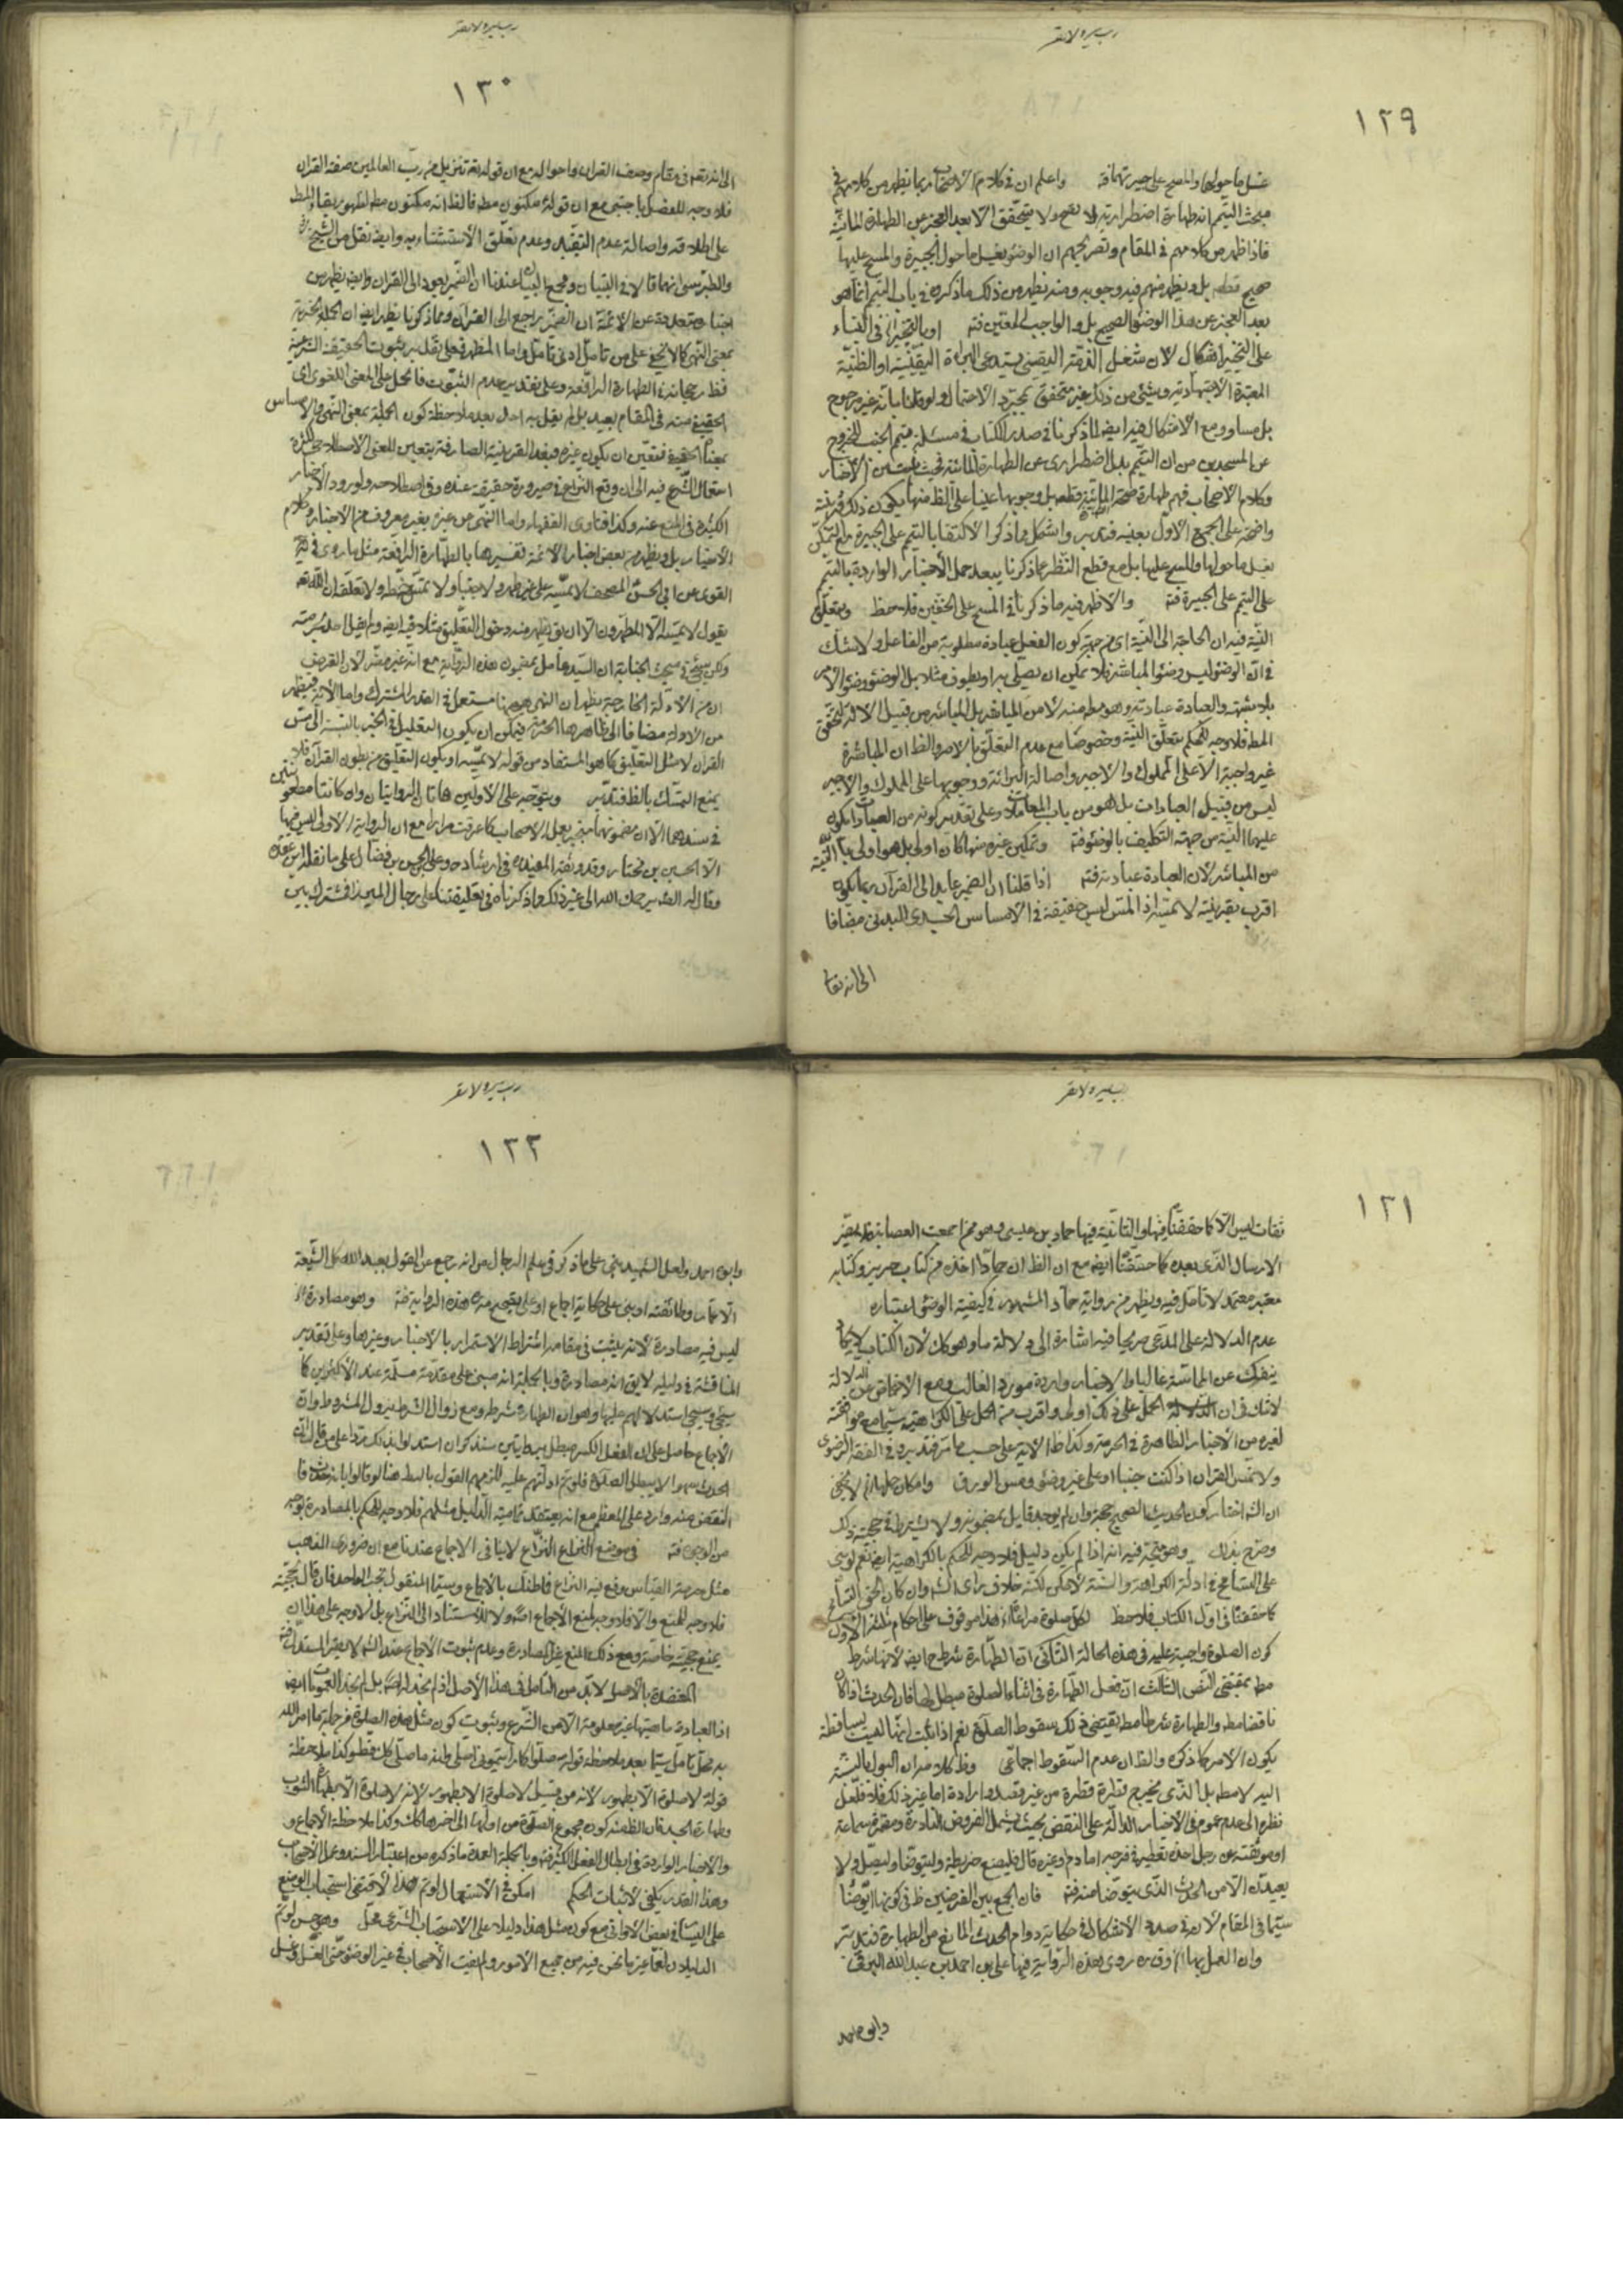 رب يسر ولا تعسر
١٢٩
غسل ما حولها والمسح على جبيرتها فته واعلم ان في كلام الاصحاب ربما يظهر من كلامهم في
مبحث التيمم انه طهارة اضطرارية ولا يصح ولا يتحقق الا بعد العجز عن الطهارة المائية
فاذا ظهر من كلامهم في المقام وتصريحهم ان الوضوء بغسل ما حول الجبيرة والمسح عليها
صحيح قطعا بل ويظهر منهم فيه وجوبه ومنه يظهر من ذلك ما ذكره في باب التيمم انما هو
بعد العجز عن هذا الوضوء الصحيح بل والواجب المعين فته او بالتخيير في البناء
على التخيير اشكال لان شغل الذمة اليقيني يستدعي البراءة اليقينية او الظنية
المعتبرة الاجتهادية وشيء من ذلك غير متحقق بمجرد الاحتمال ولو قلنا بانه غير مرجوح
بل مساو ومع الاشكال فيه ايضا لما ذكرنا في صدر الكتاب في مسئلة تيمم الجنب للخروج
عن المسجدين من ان التيمم بدل اضطراري عن الطهارة المائية فحيث ثبت من الاخبار
وكلام الاصحاب فهم طهارة صحة المائية قطعا بل وجوبها عينا على الظ منها يكون ذلك قرينة
واضحة على الجمع الاول بعينه فتدبر واشكل ما ذكر الاكتفا بالتيمم على الجبيرة مع التمكن
بغسل ما حولها والمسح عليها بل مع قطع النظر عما ذكرنا يبعد حمل الاخبار الواردة بالتيمم
على التيمم على الجبيرة فته والاظهر فيه ما ذكرنا في المسح على الخفين فلاحظ ويتعلق
النية فيه ان الحاجة الى النية اي من جهة كون الفعل عبادة مطلوبة من الفاعل ولا شك
في ان الوضوء ليس وضوء المباشر فلا يمكن ان يصلي به او يطوف مثلا بل الوضوء وضوء الآمر
بلا شبهة والعبادة عبادته وهو مط منه لا من المباشر بل المباشر من قبيل الآلة لتحقق
المط فلا وجه للحكم بتعلق النية وخصوصا مع عدم التعلق بالامر والظ ان المباشرة
غير واجبة الا على المملوك والاجير واصالة البرائة ووجوبها على المملوك والاجير
ليس من قبيل العبادات بل هو من باب المعاملات وعلى تقدير كونه من العبادات يكون
عليهما النية من جهة التكليف بالوضوء فته وتمكين غيره منها كان اولى بل هو اولى بالنية
من المباشر لان العبادة عبادته فته اذا قلنا ان الضمير عايد الى القرآن ربما يكون
اقرب بقرينة لا يمسه اذ المس ليس حقيقة في الامساس الجسدي البدني مضافا
الى انه تعا
رب يسر ولا تعسر
١٣٠
الى انه تعالى في مقام وصف القران واحواله مع ان قوله تعه تنزيل من رب العالمين صفة القران
فلا وجه للفصل باجنبي مع ان قوله مكنون مط فالظ انه مكنون مط لظهور بقاء المط
على اطلاقه واصالة عدم التقييد وعدم تعلق الاستثناء به وايضا نقل من الشيخ ره
والطبرسي انهما قالا في التبيان ومجمع البيان عندنا ان الضمير يعود الى القران وايضا يظهر من
اخبار متعددة عن الائمة ان الضمير راجع الى القرآن ومما ذكرنا يظهر ايضا ان الجملة الخبرية
بمعنى النهي كما لا يخفى على من تامل ادنى تامل واما المطهر فعلى تقدير ثبوت الحقيقة الشرعية
فظ رجحانه في الطهارة الرافعة وعلى تقدير عدم الثبوت فالحمل على المعنى اللغوي اي
الحقيقي منه في المقام بعيد بل لم يقل به احد بعد ملاحظة كون الجملة بمعنى النهي والامساس
بمعناه الحقيقي فتعين ان يكون غيره فبعد القرينة الصارفة يتعين للمعنى الاصطلاحي لكثرة
استعمال الشرع فيه الى ان وقع النزاع في صيرورة حقيقة عنده وفي اصطلاحه ولورود الاخبار
الكثيرة في المنع عنه وكذا فتاوى الفقهاء واما النهي من غيره بغير معروف من الاخبار وكلام
الاخيار بل ويظهر من بعض اخبار الائمة تفسيرها بالطهارة الرافعة مثل ما روي في
القوى عن ابي الحسن المصحف لا تمسه على غير طهر ولا جنبا ولا تمس خيطه ولا تعلقه ان الله تعه
يقول لا يمسه الا المطهرون الا ان يق يظهر منه دخول التعليق مثلا فيه ايضا ولم يقل احد بحرمته
ولكن سيجئ في مبحث الجنابة ان السيد عامل بمضمون هذه الرواية مع انه غير مضر لان الغرض
ان من الادلة الخارجة يظهر ان النهي ههنا مستعمل في القدر المشترك واما الآية فيظهر
من الادلة مضافا الى ظاهرها الحرمة فيمكن ان يكون التعليل في الخبر بالنسبة الى مس
القران لا مثل التعليق كما هو المستفاد من قوله لا يمسه او يكون التعليق من بطون القرآن فلا
يمنع التمسك بالظ فتدبر ويتوجه على الاولين هاتان الروايتان وان كانتا مطعونتين
في سندهما الا ان مضمونهما منجبر بعمل الاصحاب كما عرفت مرارا مع ان الرواية الاولى ليس فيها
الا الحسين بن مختار وقد وثقه المفيد ره في ارشاده وعلى بن الحسن بن فضال على ما نقله ابن عقدة
وقال له الصدير حمك الله الى غير ذلك وما ذكرناه في تعليقتنا على رجال الميرزا فمشترك بين
رب يسر ولا تعسر
١٣١
ثقات ليس الا كما حققنا فيها والثانية فيها حماد بن عيسى وهو ممن اجمعت العصابة فلا يضر
الارسال الذي بعده كما حققنا ايضا مع ان الظ ان حمادا اخذه من كتاب حريز وكتابه
معتبر معتمد لا تامل فيه ويظهر من رواية حماد المشهور في كيفية الوضوء اعتباره
عدم الدلالة على المدعى صريحا فيه اشارة الى دلالة ما وهو كك لان الكتاب لا يكاد
ينفك عن الماسة غالبا والاخبار واردة مورد الغالب ومع الاغماض عن الدلالة
لاشك في ان الحمل على ذلك اولى واقرب من الحمل على الكراهة سيما مع موافقته
لغيره من الاخبار الظاهرة في الحرمة وكذا ظ الآية على حسب ما مر فتدبر وفي الفقه الرضوي
ولا تمس القران اذا كنت جنبا او على غير وضوء ومس الورق وامكان حملها لا يخفى
ان الشه اختار كون الحديث الصحيح حجة وان لم يوجد قايل بمضمونه ولا يشترط في حجية ذلك
وصرح بذلك وهو متجه فيه انه اذا لم يكن دليل فلا وجه للحكم بالكراهية ايضا نعم لو بني
على التسامح في ادلة الكراهة والسنة لامكن لكنه خلاف راي الشه وان كان الحق التسامح
كما حققنا في اول الكتاب فلاحظ لكل صلوة مراعيا اه هذا موقوف على احكام ثلثة الاول
كون الصلوة واجبة عليه في هذه الحالة الثاني ان الطهارة شرط ح ايضا لانها شرط
مط بمقتضى النص الثالث ان فعل الطهارة في اثناء الصلوة مبطل لها فان الحدث اذا كان
ناقضا مط والطهارة شرطا مط يقتضي ذلك سقوط الصلوة نعم اذا ثبت انها ليست بساقطة
يكون الامر كما ذكره والظ ان عدم السقوط اجماعي وظ كلامه ان البول بالنسبة
اليه لا مط بل الذي يخرج قطرة قطرة من غير قصد وارادة اما غير ذلك فلا فلعل
نظره الى عدم عموم في الاخبار الدالة على النقض بحيث يشمل الفروض النادرة ومضمرة سماعة
او موثقته عن رجل اخذه تقطير في فرجه اما دم او غيره قال فليصنع خريطة وليتوضأ وليصل ولا
يعيدن الا من الحدث الذي يتوضأ منه فته فان الجمع بين الفرضين ظ في كونهما ايضا
سيما في المقام لانه في صدد الاشكال في حكاية دوام الحدث المانع من الطهارة فتدبر
وان العمل بها اه وقد روى هذه الرواية فيها على بن احمد بن عبد الله البرقي
وابوه احمد
رب يسر ولا تعسر
١٣٢
وابوه احمد ولعل الشهيد بنى على ما ذكر في علم الرجال من انه رجع عن القول بعبد الله كل الشيعة
الا عمار وطائفته او بنى على حكاية اجماع او على تصحيح منه هذه الرواية فته وهو مصادرة اه
ليس فيه مصادرة لانه يثبت في مقامه اشتراط الاستمرار بالاخبار وغيرها وعلى تقدير
المناقشة في دليله لا يق انه مصادرة وبالجملة انه مبني على مقدمة مسلمة عند الاكثرين كما
سيجئ وسيجئ استدلالهم عليها وهو ان الطهارة شرط ومع زوال الشرط يزول المشروط وان
الاجماع حاصل على ان الفعل الكثير مبطل
الحدث سهوا لا يبطل الصلوة فلو تم ادلتهم عليه للزمهم القول بالبط هنا
النقض منه وارد على المعظم مع انه يعتقد تمامية الدليل مثلهم فلا وجه للحكم بالمصادرة بوجه
من الوجوه فته في موضع النزاع النزاع لا ينافي الاجماع عندنا مع ان ضروري المذهب
مثل حرمة القياس وقع فيه النزاع فما ظنك بالاجماع وسيما المنقول بخبر الواحد فان قال بحجيته
فلا وجه للمنع والا فلا وجه لمنع الاجماع اصلا ولا للاستناد الى النزاع بل لا وجه على هذا ان
يمنع حجيته خاصة ومع ذلك المنع غير المصادرة وعدم ثبوت الاجماع عند الشه لا يضر المستدل فته
المعتضدة بالاصل لابد من التامل في هذا الاصل اذ لم نجد له اصلا بل لم نجد العمومات ايضا
اذ العبادة ماهيتها غير معلومة الا من الشرع وثبوت كون مثل هذه الصلوة فرد لما امر الله
به محل تامل سيما بعد ملاحظة قوله صلوا كما رايتموني اصلي وانه ما صلى كك قط وكذا ملاحظة
قوله لا صلوة الا بطهور لانه من قبيل لا صلوة الا بطهور لانه لا صلوة الا بطهارة الثوب
وطهارة الجسد فان الظ منه كون مجموع الصلوة من اولها الى اخرها كك وكذا ملاحظة الاجماع و
والاخبار الواردة في ابطال الفعل الكثير فته وبالجملة العمدة ما ذكره من اعتبار السند وعمل الاصحاب
وهذا القدر يكفي لاثبات الحكم امكن في الاستعمال اه لو تم هذا لاقتضى استحباب الوضع
على اليسار في بعض الاواني مع كون مثل هذا دليلا على الاستحباب الشرعي محل وهو حسن لو تم
الدليلان لعله غير ما نحن فيه من جميع الامور ولم يفت الاصحاب في غير الوضوء حتى الغسل وغسل